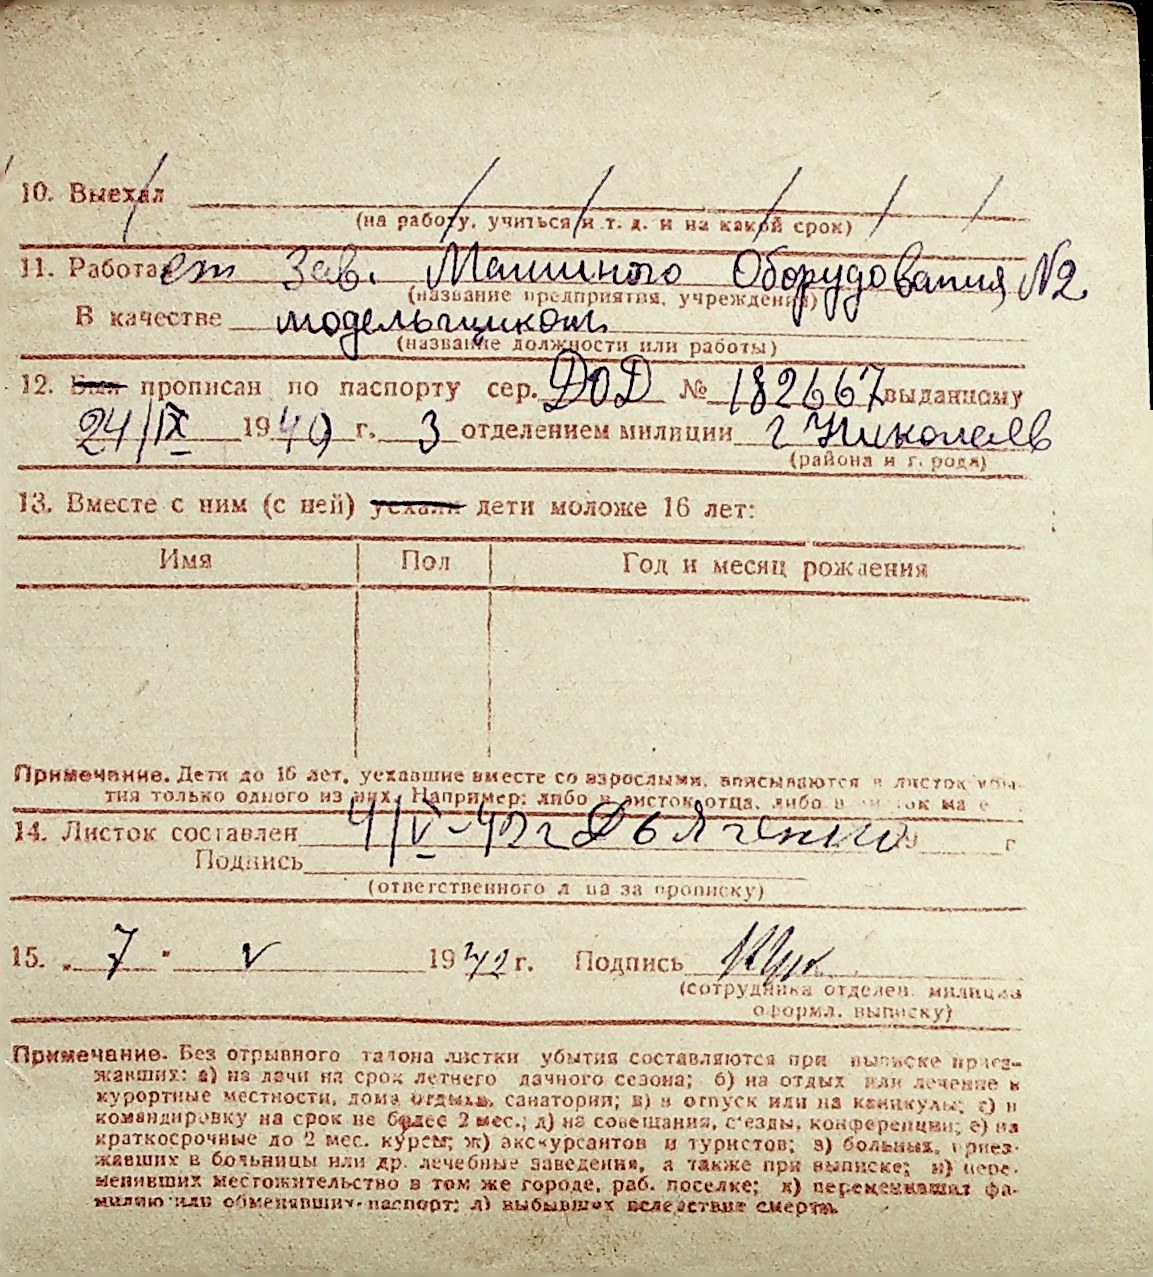 10. Выехал
(на работу, учиться и т. д. и на какой срок)
11. Работает Зав. Машиного Оборудования №2
(название предприятия, учреждения)
В качестве модельщиком
(название должности или работы)
12. Был прописан по паспорту сер. ДОД № 182667 выданному
24/IX 1940 г. 3 отделением милиции г Николаев
(района и города)
13. Вместе с ним (с ней) уехали дети моложе 16 лет:
Имя Пол Год и месяц рождения
Примечание. Дети до 16 лет, уехавшие вместе со взрослыми, вписываются в листок убы-
тия только одного из них. Например: либо в листок отца, либо в листок ма
14. Листок составлен 4/V-42г Дьяченко г
Подпись
(ответственного лица за прописку)
15. „ 7 " V 1942 г. Подпись
(сотрудника отделен. милиции
оформл. выписку)
Примечание. Без отрывного талона листки убытия составляются при выписке приез-
жавших: а) на дачи на срок летнего дачного сезона; б) на отдых или лечение в
курортные местности, дома отдыха, санатории; в) в отпуск или на каникулы; г) в
командировку на срок не более 2 мес.; д) на совещания, съезды, конференции; е) на
краткосрочные до 2 мес. курсы; ж) экскурсантов и туристов; з) больных, приез-
жавших в больницы или др. лечебные заведения, а также при выписке; и) пере-
менивших местожительство в том же городе, раб. поселке; к) переменивших фа-
милию или обменявших паспорт; л) выбывших вследствие смерти.